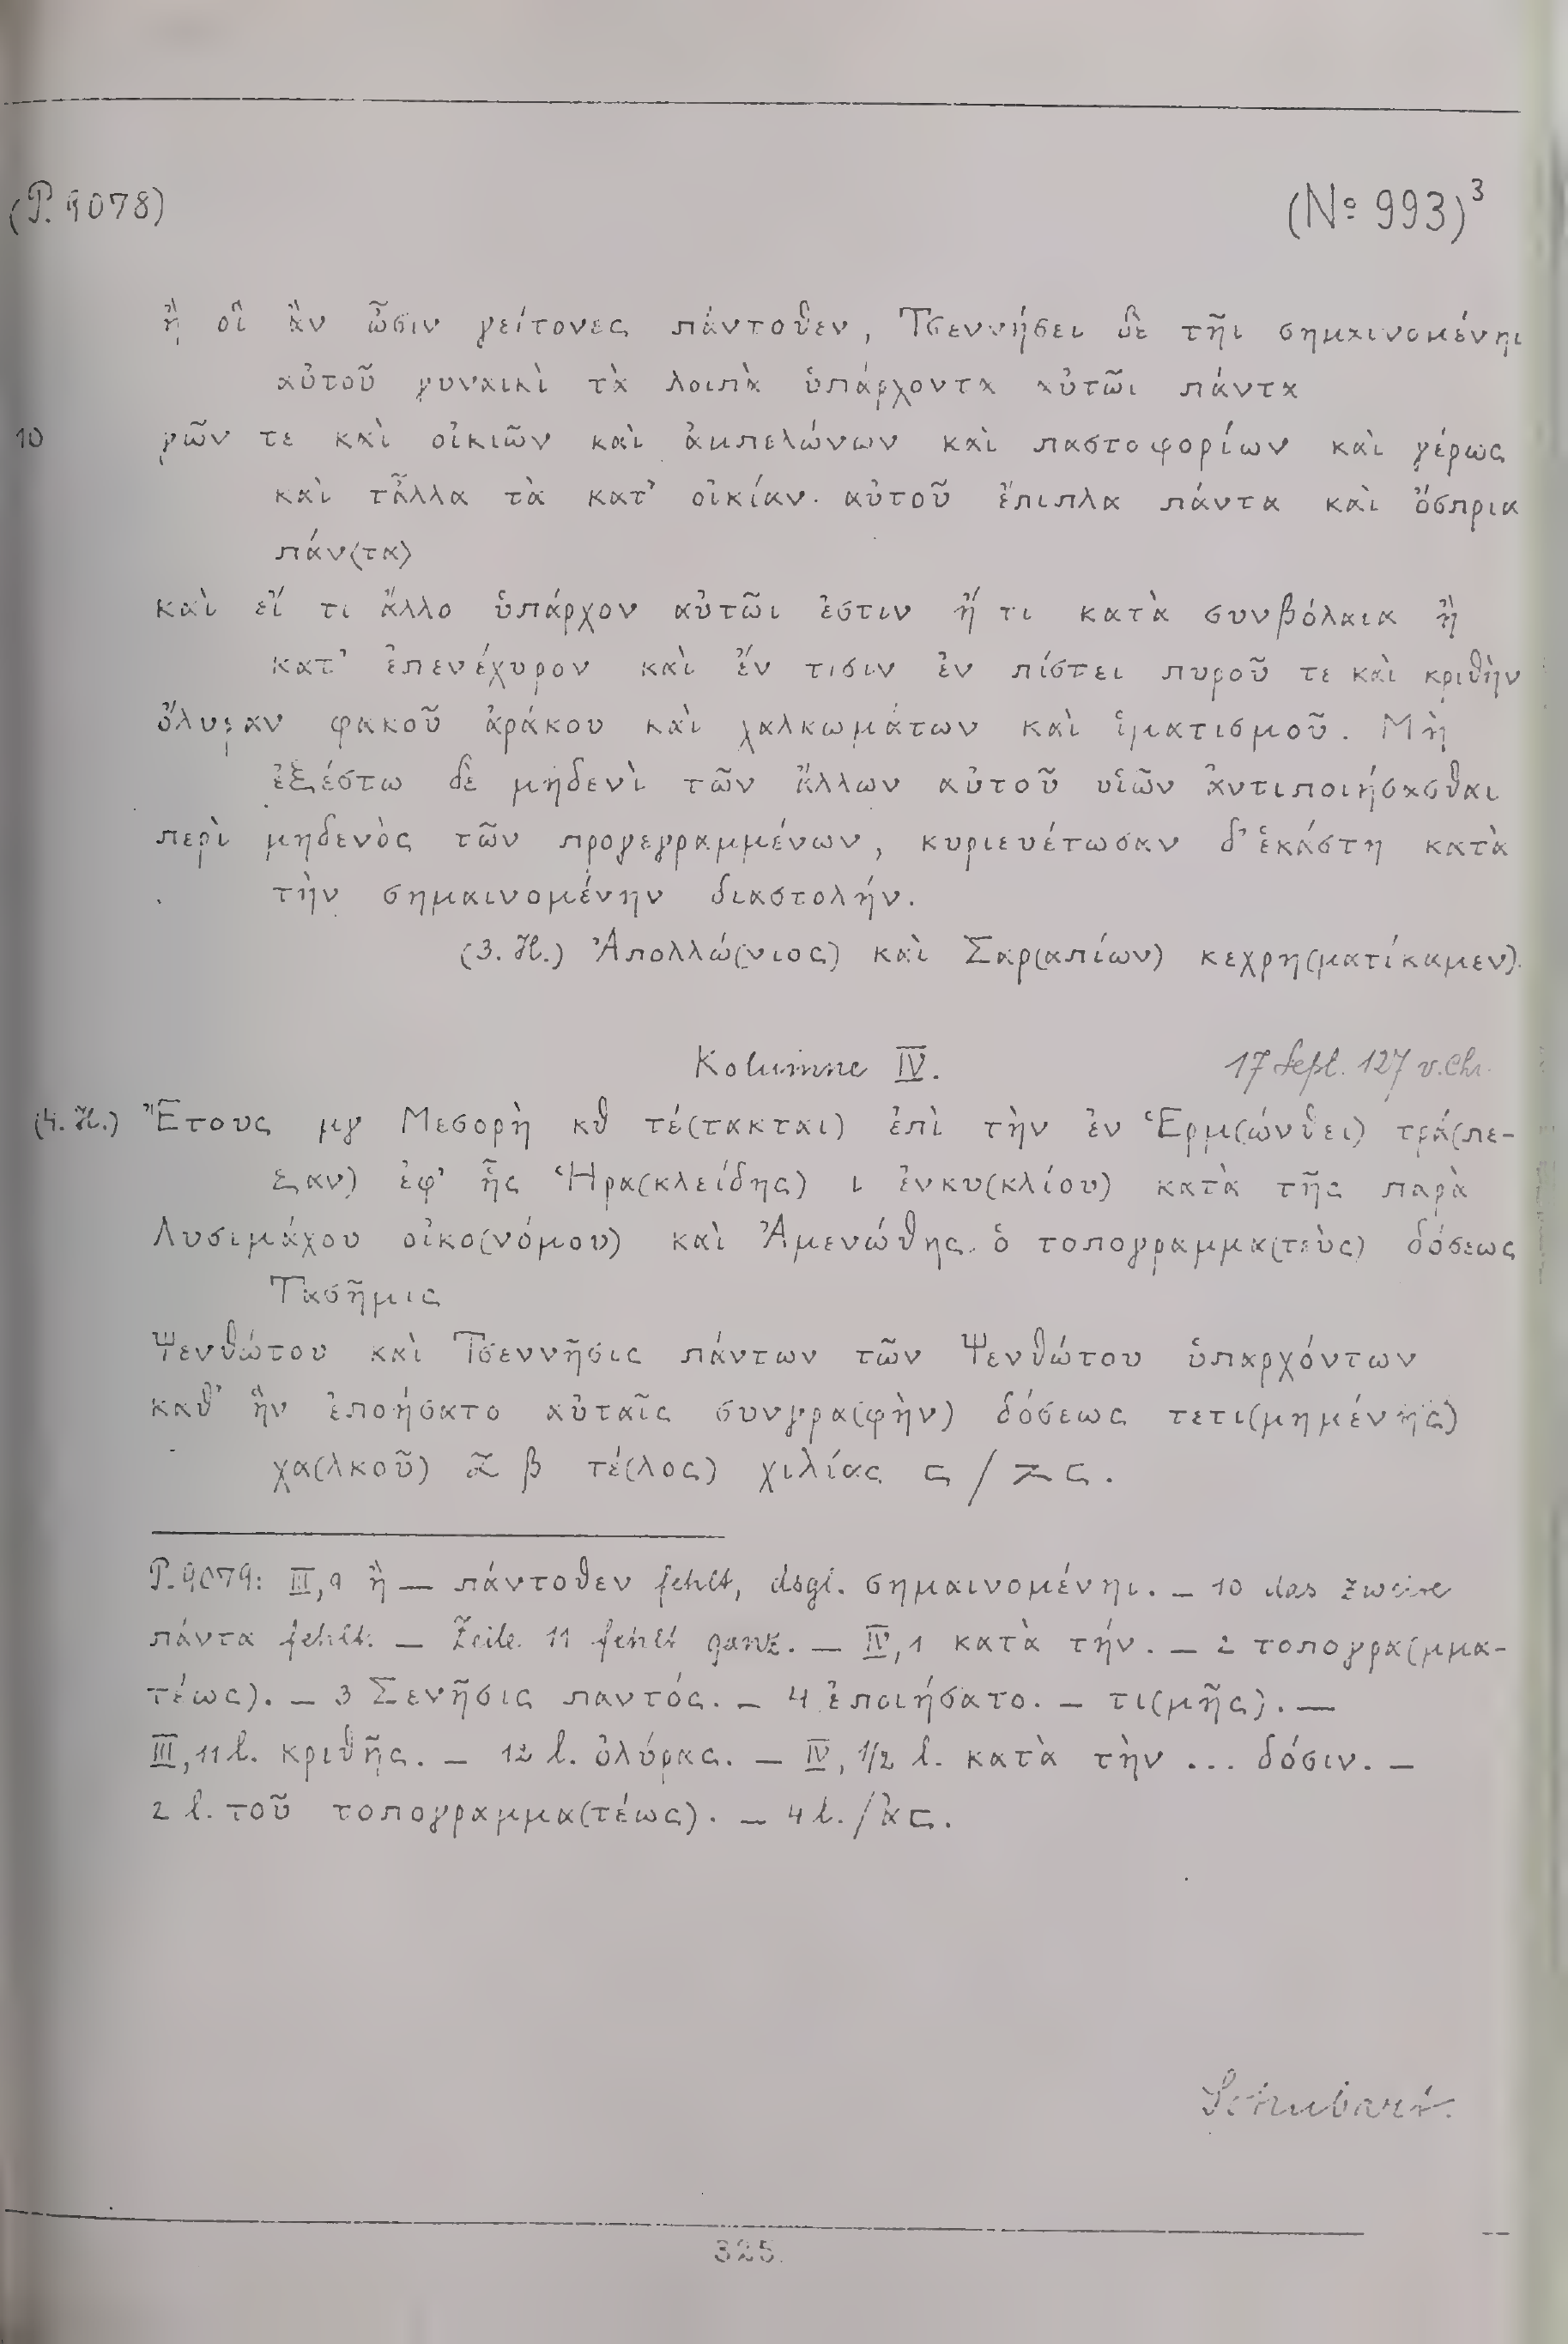 (P. 9078)
(No 993)³
ἢ οἳ ἂν ὦσιν γείτονες πάντοθεν, Τσεννήσει δὲ τῆι σημαινομένηι
αὐτοῦ γυναικὶ τὰ λοιπὰ ὑπάρχοντα αὐτῶι πάντα
10 γῶν τε καὶ οἰκιῶν καὶ ἀμπελώνων καὶ παστοφορίων καὶ γέρως
καὶ τἆλλα τὰ κατ' οἰκίαν αὐτοῦ ἔπιπλα πάντα καὶ ὄσπρια
πάν⟨τα⟩
καὶ εἴ τι ἄλλο ὑπάρχον αὐτῶι ἐστιν ἤ τι κατὰ συνβόλαια ἢ
κατ' ἐπενέχυρον καὶ ἔν τισιν ἐν πίστει πυροῦ τε καὶ κριθὴν
ὄλυραν φακοῦ ἀράκου καὶ χαλκωμάτων καὶ ἱματισμοῦ. Μὴ
ἐξέστω δὲ μηδενὶ τῶν ἄλλων αὐτοῦ υἱῶν ἀντιποιήσασθαι
περὶ μηδενὸς τῶν προγεγραμμένων, κυριευέτωσαν δ' ἑκάστη κατὰ
τὴν σημαινομένην διαστολήν.
(3. H.) Ἀπολλώ(νιος) καὶ Σαρ(απίων) κεχρη(ματίκαμεν).
Kolumne IV.
17 Sept. 127 v. Chr.
(4. H.) Ἔτους μγ Μεσορὴ κθ τέ(τακται) ἐπὶ τὴν ἐν Ἑρμ(ώνθει) τρά(πε-
ζαν) ἐφ' ἧς Ἡρα(κλείδης) ι ἐνκυ(κλίου) κατὰ τῆς παρὰ
Λυσιμάχου οἰκο(νόμου) καὶ Ἀμενώθης ὁ τοπογραμμα(τεὺς) δόσεως
Τασῆμις
Ψενθώτου καὶ Τσεννῆσις πάντων τῶν Ψενθώτου ὑπαρχόντων
καθ' ἣν ἐποήσατο αὐταῖς συνγρα(φὴν) δόσεως τετι(μημένης)
χα(λκοῦ) β τέ(λος) χιλίας
P. 9079: III, 9 ἢ — πάντοθεν fehlt, dsgl. σημαινομένηι. — 10 das zweite
πάντα fehlt. — Zeile 11 fehlt ganz. — IV, 1 κατὰ τήν. — 2 τοπογρα(μμα-
τέως). — 3 Σενῆσις παντός. — 4 ἐποιήσατο. — τι(μῆς). —
III, 11 l. κριθῆς. — 12 l. ὀλύρας. — IV, 1/2 l. κατὰ τὴν ... δόσιν. —
2 l. τοῦ τοπογραμμα(τέως). — 4 l.
Schubart.
325.